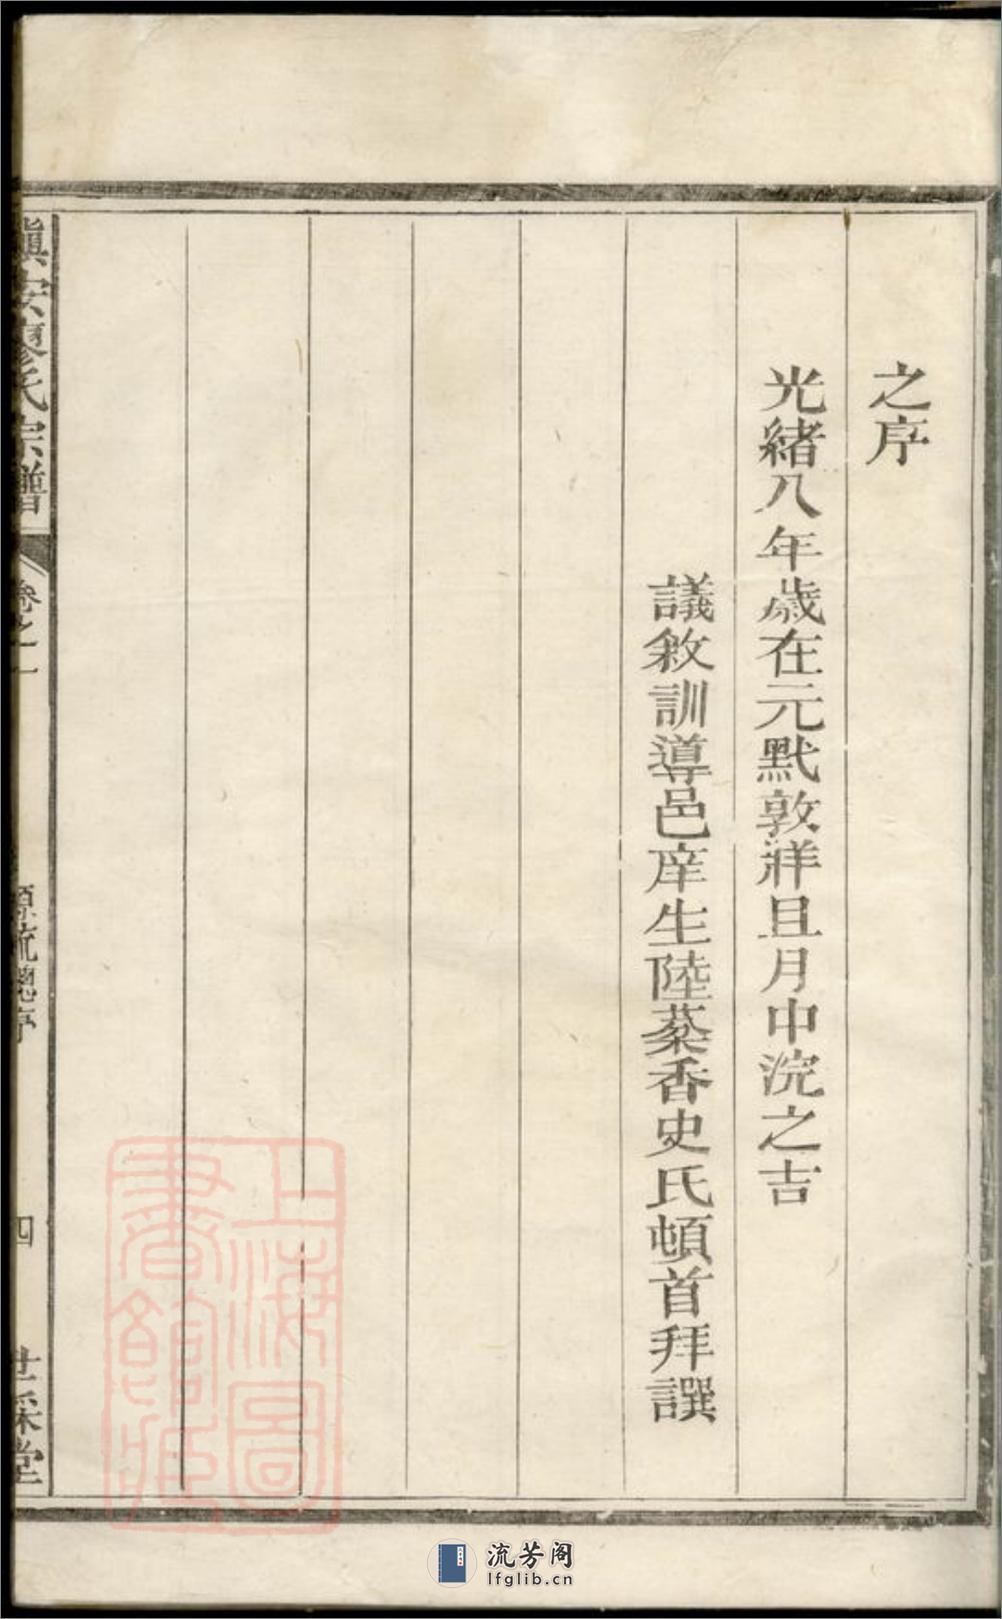 之序
光緒八年歲在元黓敦牂且月中浣之吉
議敘訓導邑庠生陸蘂香史氏頓首拜譔
鎭安廖氏宗譜
卷之一
源流總序
四
世綵堂
上海圖
書館藏
流芳阁
lfglib.cn